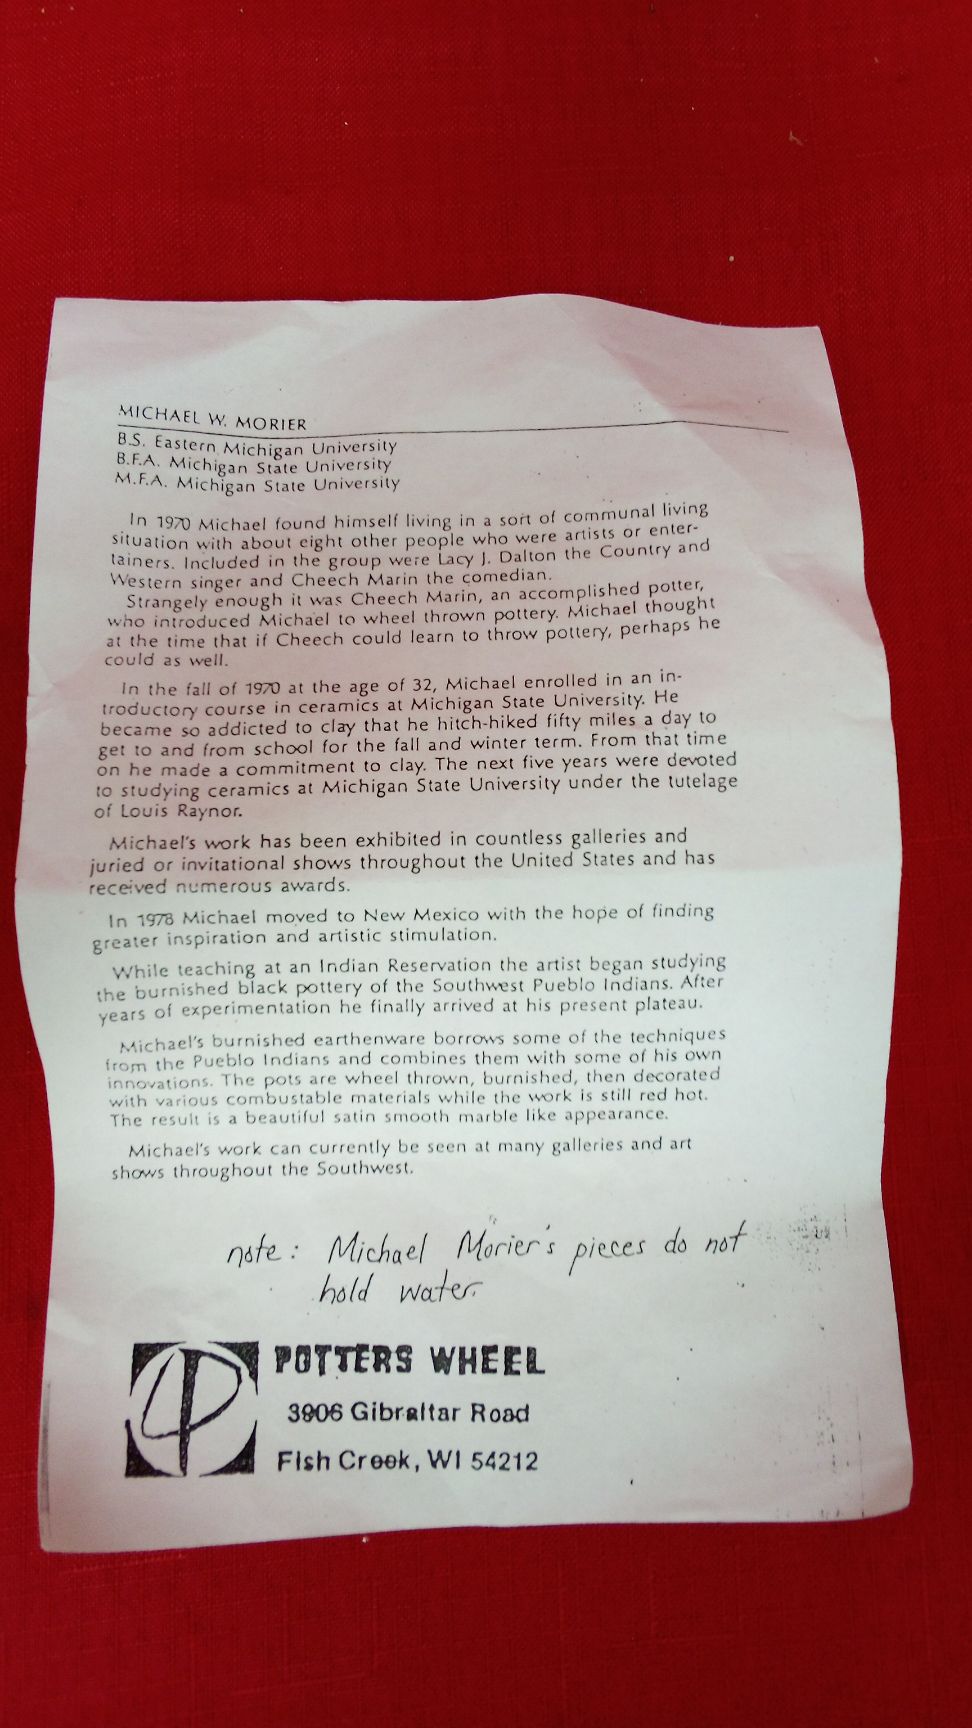 MICHAEL W. MORIER
B.S. Eastern Michigan University
B.F.A. Michigan State University
M.F.A. Michigan State University
In 1970 Michael found himself living in a sort of communal living
situation with about eight other people who were artists or enter-
tainers. Included in the group were Lacy J. Dalton the Country and
Western singer and Cheech Marin the comedian.
Strangely enough it was Cheech Marin, an accomplished potter,
who introduced Michael to wheel thrown pottery. Michael thought
at the time that if Cheech could learn to throw pottery, perhaps he
could as well.
In the fall of 1970 at the age of 32, Michael enrolled in an in-
troductory course in ceramics at Michigan State University. He
became so addicted to clay that he hitch-hiked fifty miles a day to
get to and from school for the fall and winter term. From that time
on he made a commitment to clay. The next five years were devoted
to studying ceramics at Michigan State University under the tutelage
of Louis Raynor.
Michael's work has been exhibited in countless galleries and
juried or invitational shows throughout the United States and has
received numerous awards.
In 1978 Michael moved to New Mexico with the hope of finding
greater inspiration and artistic stimulation.
While teaching at an Indian Reservation the artist began studying
the burnished black pottery of the Southwest Pueblo Indians. After
years of experimentation he finally arrived at his present plateau.
Michael's burnished earthenware borrows some of the techniques
from the Pueblo Indians and combines them with some of his own
innovations. The pots are wheel thrown, burnished, then decorated
with various combustable materials while the work is still red hot.
The result is a beautiful satin smooth marble like appearance.
Michael's work can currently be seen at many galleries and art
shows throughout the Southwest.
note: Michael Morier's pieces do not
hold water.
POTTERS WHEEL
3906 Gibraltar Road
Fish Creek, WI 54212